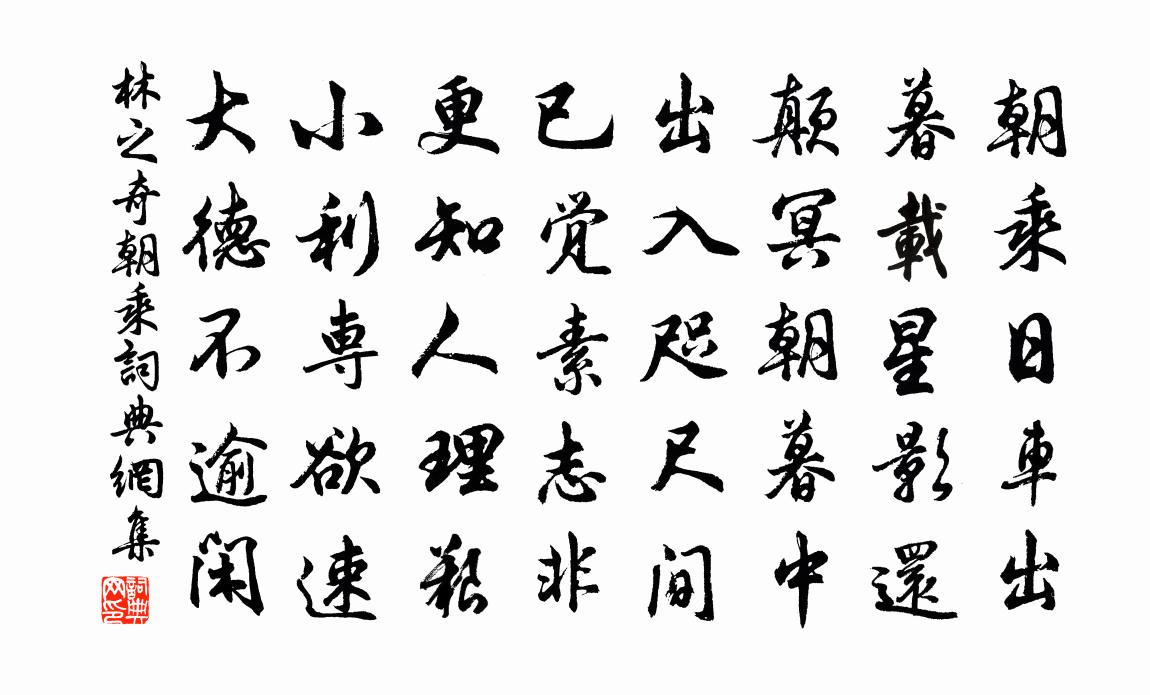 朝乘日車出
暮載星影還
颠冥朝暮中
出入咫尺间
已觉素志非
更知人理艱
小利専欲速
大德不逾闲
林之奇朝乘詞典網集
詞典網印